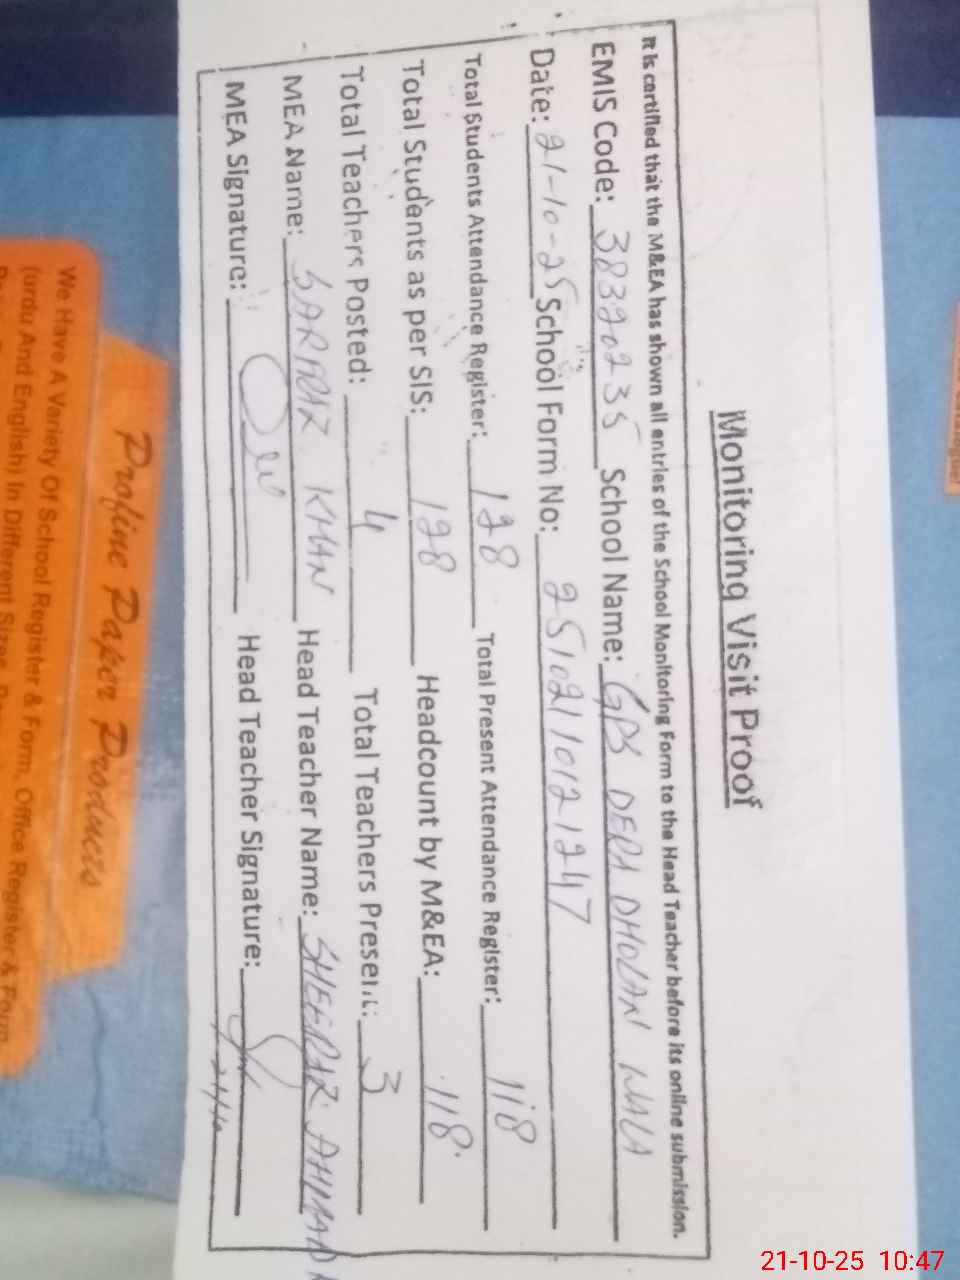 Monitoring Visit Proof
It is certified that the M&EA has shown all entries of the School Monitoring Form to the Head Teacher before its online submission.
EMIS Code: 38320235 School Name: GPS DERA DHOLAN WALA
Date: 21-10-25 School Form No: 25102110121247
Total Students Attendance Register: 128 Total Present Attendance Register: 118
Total Students as per SIS: 128 Headcount by M&EA: 118
Total Teachers Posted: 4 Total Teachers Present: 3
MEA Name: SARFRAZ KHAN Head Teacher Name: SHEERAZ AHMAD
MEA Signature: Head Teacher Signature:
Profine Paper Products
We Have A Variety Of School Register & Form, Office Register & Form
(urdu And English) In Different Sizes
21-10-25 10:47